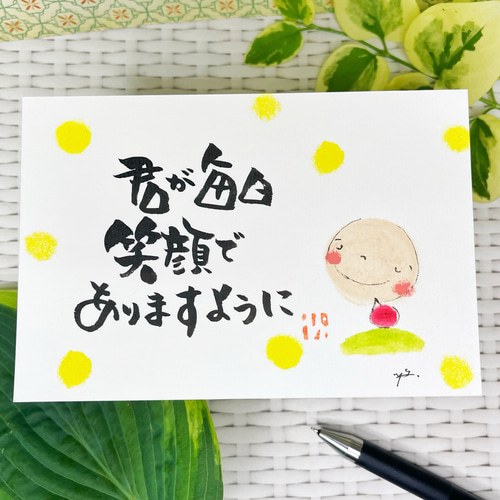 君が毎日
笑顔で
ありますように